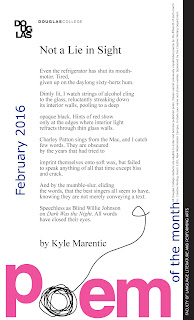 DOUGLASCOLLEGE
Not a Lie in Sight
Even the refrigerator has shut its mouth-
motor. Tired,
given up on the daylong sixty-hertz hum.
Dimly lit, I watch strings of alcohol cling
to the glass, reluctantly streaking down
its interior walls, pooling to a deep
opaque black. Hints of red show
only at the edges where interior light
refracts through thin glass walls.
Charley Patton sings from the Mac, and I catch
few words. They are obscured
by the years that had tried to
imprint themselves onto soft wax, but failed
to speak anything of all that time except hiss
and crack.
And by the mumble-slur, eliding
the words, that the best singers all seem to have,
knowing they are not merely conveying a text.
Speechless as Blind Willie Johnson
on Dark Was the Night. All words
have closed their eyes.
by Kyle Marentic
February 2016
poem
of the month
FACULTY OF LANGUAGE, LITERATURE AND PERFORMING ARTS